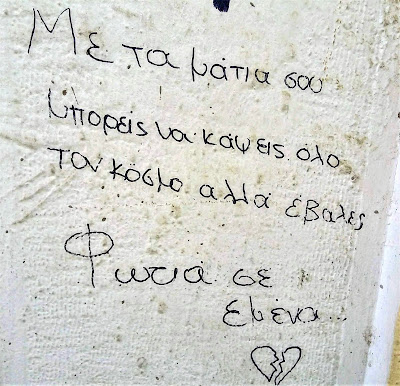 Με τα μάτια σου
μπορείς να κάψεις όλο
τον κόσμο αλλά έβαλες
Φωτιά σε
εμένα...